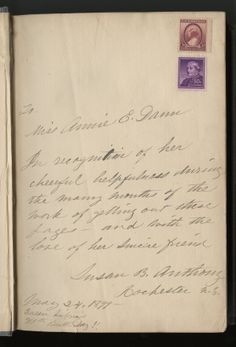 To
Miss Annie E. Dann
In recognition of her
cheerful helpfulness during
the many months of the
work of getting out these
pages - and with the
love of her sincere friend
Susan B. Anthony
Rochester N.Y.
May 24, 1899 -
Queen
Birth day!!